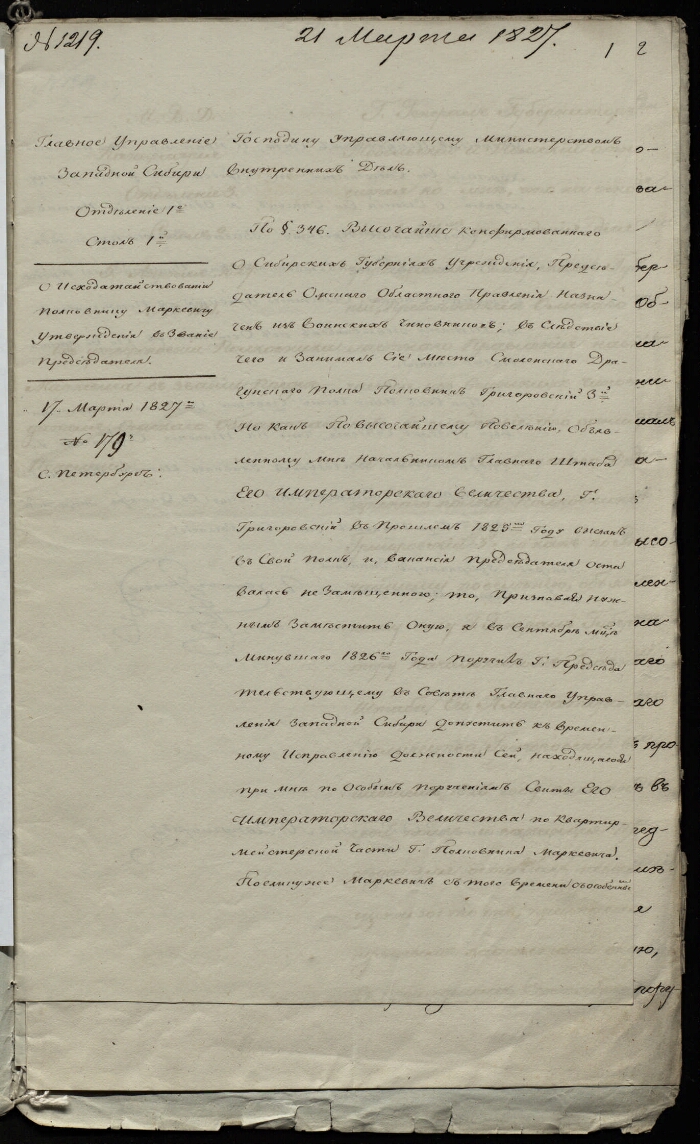 № 1219.
21 Марта 1827.
1
2
Главное Управленіе
Западной Сибири
Отдѣленіе 1е
Столъ 1й
О Исходатайствовати
Полковнику Маркевичу
Утвержденія въ Званіе
Предсѣдателя.
17. Марта 1827го
№ 179.
С. Петербургъ.
Господину Управляющему Министерствомъ
Внутреннихъ Дѣлъ.
По §. 346. Высочайше конфирмованнаго
О Сибирскихъ Губерніяхъ Учрежденія, Предсѣ-
датель Омскаго Областнаго Правленія Назна
ченъ изъ Воинскихъ Чиновниковъ; въ Слѣдствіе
Чего и Занималъ Сіе Мѣсто Смоленскаго Дра-
гунскаго Полка Полковникъ Григоровскій 3й
Но какъ По высочайшему Повелѣнію, Объяв-
ленному Мнѣ Начальникомъ Главнаго Штаба
Его Императорскаго Величества, Г.
Григоровскій въ Прошломъ 1825мъ Годѣ
въ Свой Полкъ, и, Вакансія Предсѣдателя оста
валась не Замѣщенною; то, Признавая Нуж-
нымъ Замѣстить Оную, я въ Сентябрѣ Мцѣ
Минувшаго 1826го Года Поручилъ Г. Предсѣда
тельствующему въ Совѣтѣ Главнаго Управ-
ленія Западной Сибири Допустить къ Времен-
ному Исправленію Должности Сей, находящагося
при Мнѣ по Особымъ Порученіямъ Свиты Его
Императорскаго Величества по Квартир-
мейстерской Части Г. Полковника Маркевича.
Поелику же Маркевичъ съ того Времени